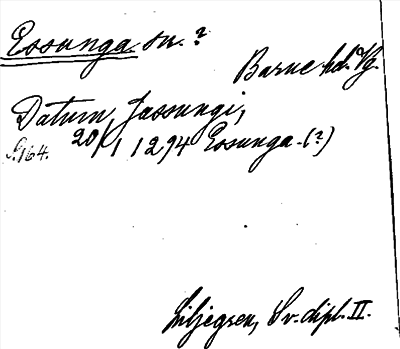 Essunga sn.?
Barne hd. Vg.
Datum Jassungi,
20/1 1294 Essunga (?)
S.164.
Liljegren, Sv. dipl. II.